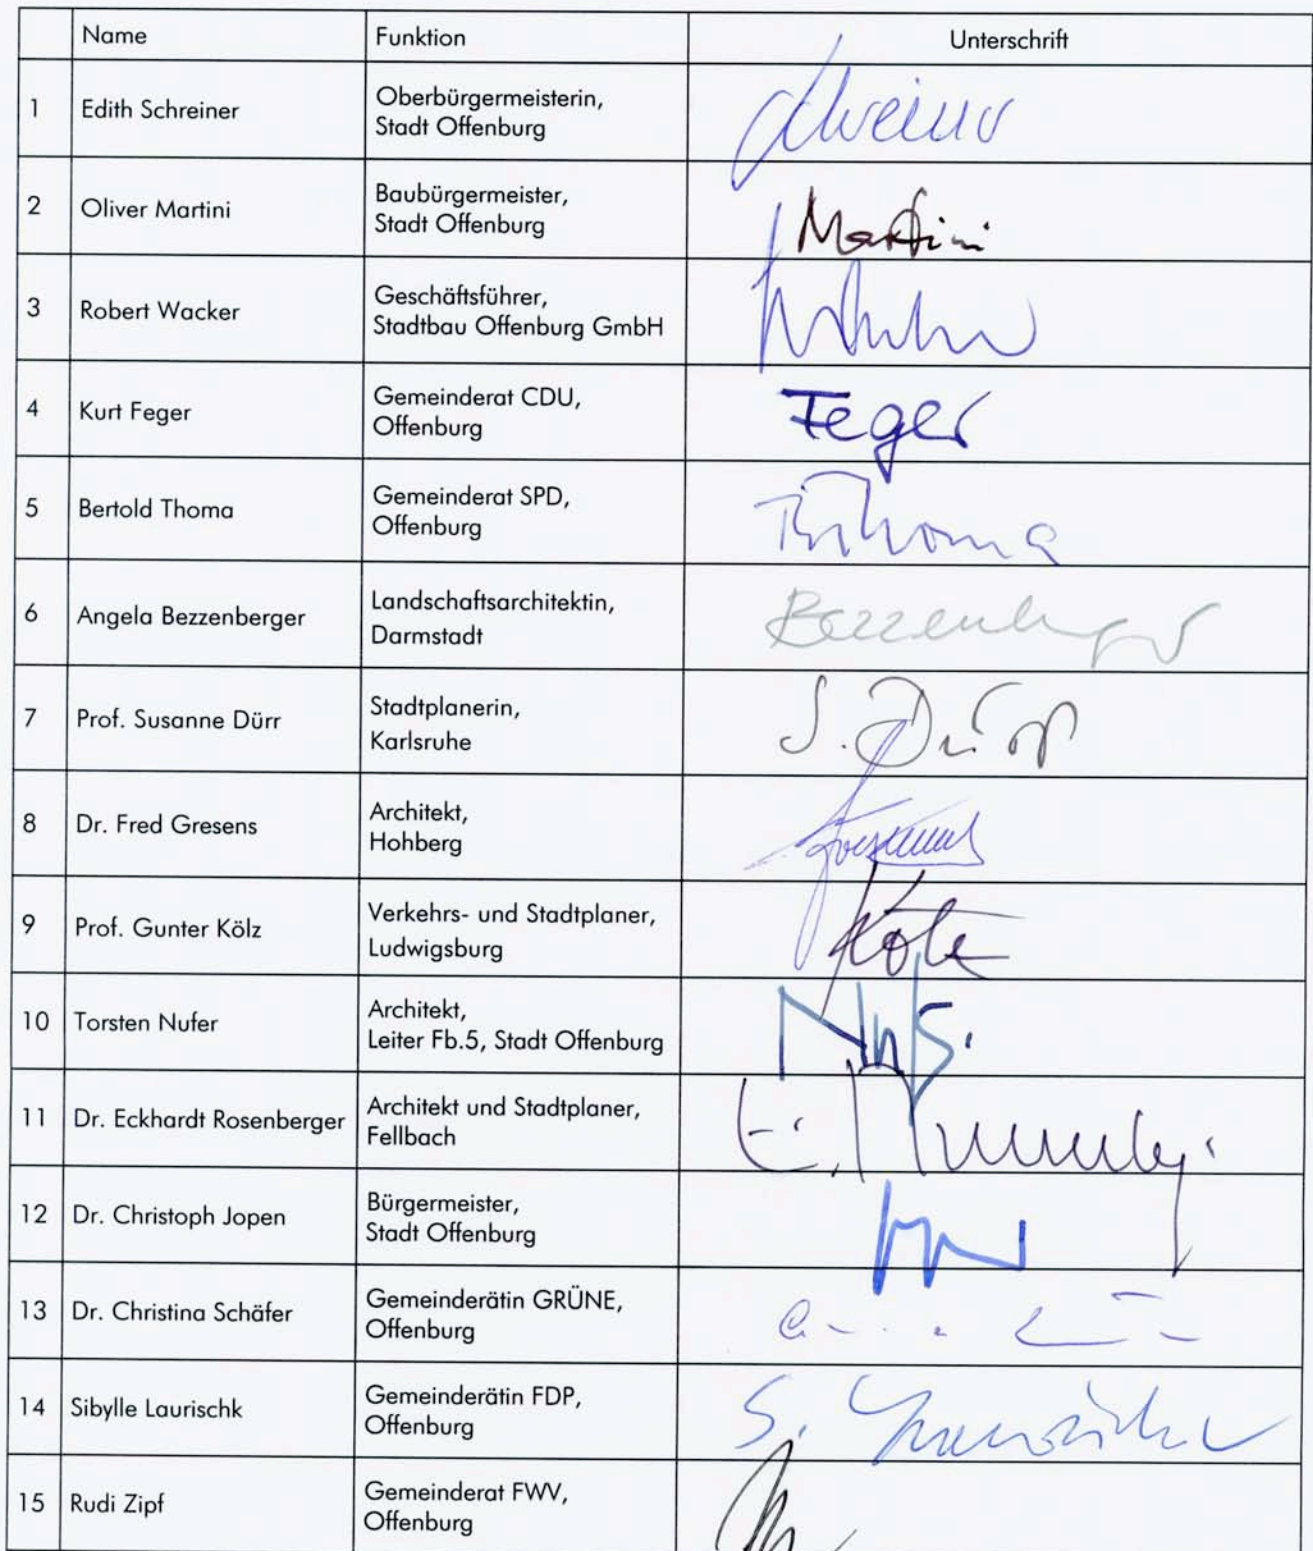 Name Funktion Unterschrift
1 Edith Schreiner Oberbürgermeisterin,
Stadt Offenburg
2 Oliver Martini Baubürgermeister,
Stadt Offenburg Martini
3 Robert Wacker Geschäftsführer,
Stadtbau Offenburg GmbH
4 Kurt Feger Gemeinderat CDU,
Offenburg Feger
5 Bertold Thoma Gemeinderat SPD,
Offenburg B. Thoma
6 Angela Bezzenberger Landschaftsarchitektin,
Darmstadt Bezzenberger
7 Prof. Susanne Dürr Stadtplanerin,
Karlsruhe S. Dürr
8 Dr. Fred Gresens Architekt,
Hohberg
9 Prof. Gunter Kölz Verkehrs- und Stadtplaner,
Ludwigsburg Kölz
10 Torsten Nufer Architekt,
Leiter Fb.5, Stadt Offenburg
11 Dr. Eckhardt Rosenberger Architekt und Stadtplaner,
Fellbach
12 Dr. Christoph Jopen Bürgermeister,
Stadt Offenburg
13 Dr. Christina Schäfer Gemeinderätin GRÜNE,
Offenburg
14 Sibylle Laurischk Gemeinderätin FDP,
Offenburg
15 Rudi Zipf Gemeinderat FWV,
Offenburg